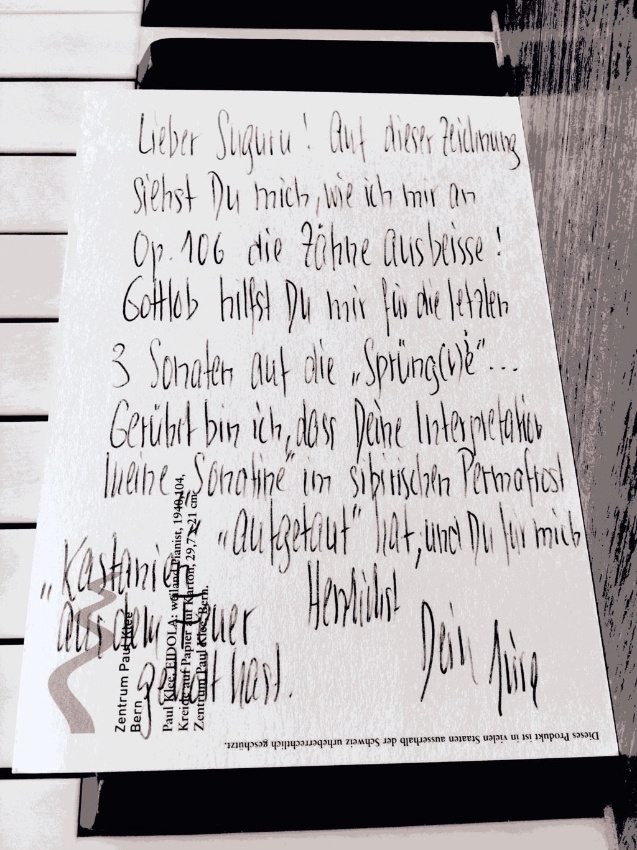 Lieber Suguru! Auf dieser Zeichnung
siehst Du mich, wie ich mir an
Op. 106 die Zähne ausbeisse!
Gottlob hilfst Du mir für die letzten
3 Sonaten auf die „Sprüng(l)i“...
Gerührt bin ich, dass Deine Interpretation
meine Sonatine" im sibirischen Permafrost
„aufgetaut“ hat, und Du für mich
„Kastanien
aus dem Feuer
geholt hast.
Herzlichst
Dein Jürg
Zentrum Paul Klee
Bern
Paul Klee, EIDOLA: weiland Pianist, 1940, 104,
Kreide auf Papier auf Karton, 29,7 x 21 cm
Zentrum Paul Klee, Bern.
Dieses Produkt ist in vielen Staaten ausserhalb der Schweiz urheberrechtlich geschützt.